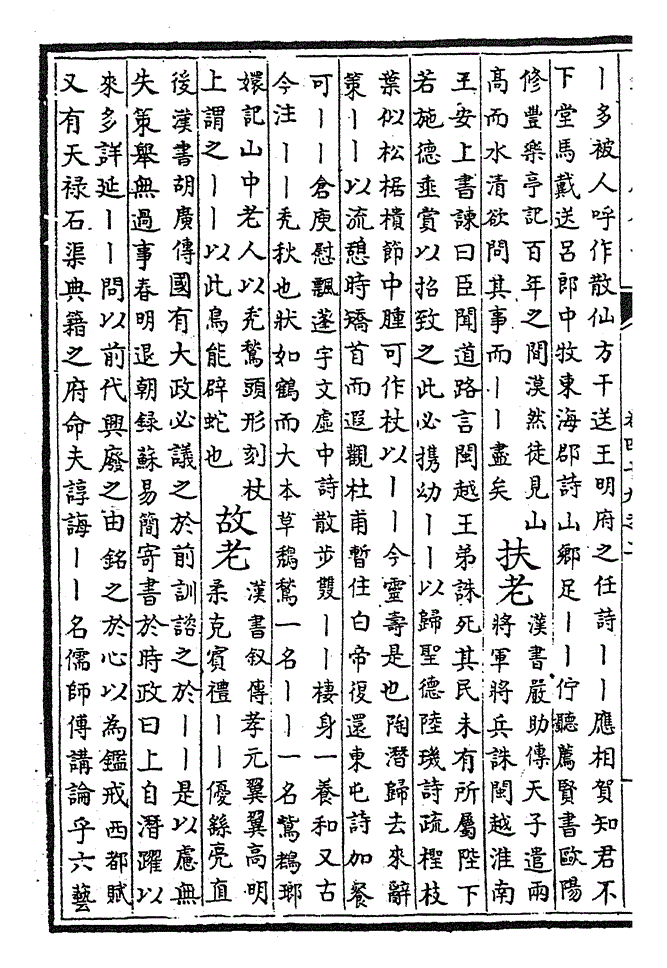 丨多被人呼作散仙方干送王明府之任詩丨丨應相賀知君不
下堂馬戴送呂郎中牧東海郡詩山鄉足丨丨佇聽薦賢書歐陽
修豐樂亭記百年之間漠然徒見山
高而水清欲問其事而丨丨盡矣
扶老
漢書嚴助傳天子遣兩
將軍將兵誅閩越淮南
王安上書諫曰臣聞道路言閩越王弟誅死其民未有所屬陛下
若施德垂賞以招致之此必携幼丨丨以歸聖德陸璣詩疏檉枝
葉似松椐樻節中腫可作杖以丨丨今靈壽是也陶潛歸去來辭
策丨丨以流憩時矯首而遐觀杜甫暫住白帝復還東屯詩加餐
可丨丨倉庾慰飄蓬宇文虛中詩散步雙丨丨棲身一養和又古
今注丨丨禿秋也狀如鶴而大本草鵚鶖一名丨丨一名鶖瑯
嬛記山中老人以禿鶖頭形刻杖
上謂之丨丨以此鳥能辟蛇也
故老
漢書叙傳孝元翼翼高明
柔克賓禮丨丨優繇亮直
後漢書胡廣傳國有大政必議之於前訓諮之於丨丨是以慮無
失策舉無過事春明退朝録蘇易簡寄書於時政曰上自潛躍以
來多詳延丨丨問以前代興廢之由銘之於心以為鑑戒西都賦
又有天禄石渠典籍之府命夫諄誨丨丨名儒師傅講論乎六藝